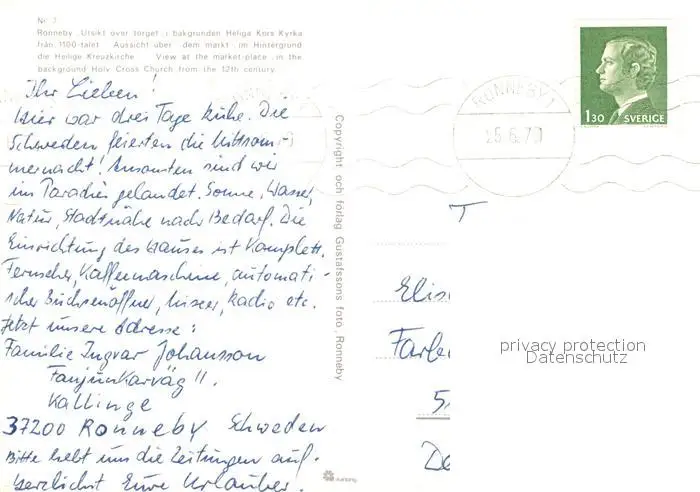 Nr. 7
Ronneby. Utsikt över torget i bakgrunden Heliga Kors Kyrka
från 1100-talet. Aussicht über dem markt im Hintergrund
die Heilige Kreuzkirche. View at the market-place in the
background Holy Cross Church from the 12th century.
Ihr Lieben!
Hier war drei Tage Ruhe. Die
Schweden feierten die Mittsom-
mernacht! Ansonsten sind wir
im Paradies gelandet. Sonne, Wasser,
Natur, Stadtnähe nach Bedarf. Die
Einrichtung des Hauses ist komplett.
Fernseher, Kaffeemaschine, automati-
scher Büchsenöffner, Mixer, Radio etc.
Jetzt unsere Adresse:
Familie Ingvar Johansson
Fanjunkarväg 11.
Kallinge
37200 Ronneby Schweden
Bitte hebt uns die Zeitungen auf.
Herzlichst Eure Urlauber.
Copyright och förlag Gustafssons foto, Ronneby
RONNEBY 1
25.6.79
130 SVERIGE
Elis
Farbe
5
De
privacy protection
Datenschutz